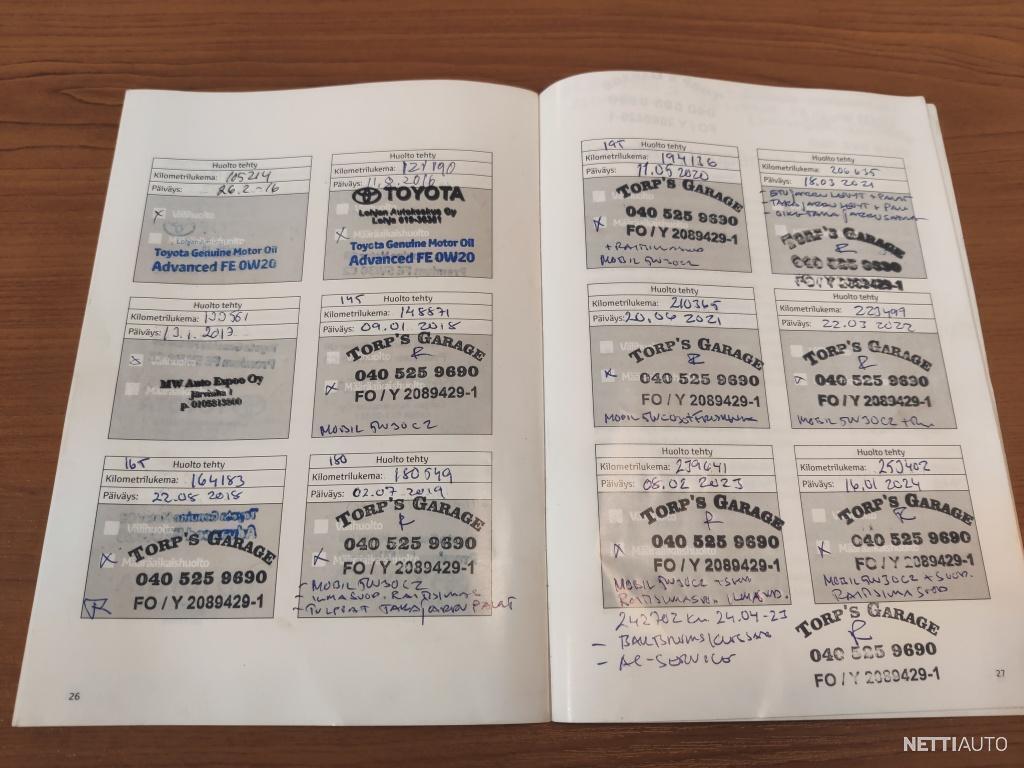 Huolto tehty
Kilometrilukema: 105214
Päiväys: 26.2.-16
Välihuolto
Toyota Genuine Motor Oil
Advanced FE 0W20
Huolto tehty
Kilometrilukema: 121190
Päiväys: 11.8.2016
TOYOTA
Lohjan Autokeskus Oy
Toyota Genuine Motor Oil
Advanced FE 0W20
Huolto tehty
Kilometrilukema:
Päiväys: 13.1.2017
MW Auto Espoo Oy
145
Huolto tehty
Kilometrilukema: 148871
Päiväys: 09.01.2018
TORP'S GARAGE
040 525 9690
FO / Y 2089429-1
MOBIL 5W30C2
165
Huolto tehty
Kilometrilukema: 164183
Päiväys: 22.08 2018
Välihuolto
Määräaikaishuolto
TORP'S GARAGE
040 525 9690
FO / Y 2089429-1
180
Huolto tehty
Kilometrilukema: 180549
Päiväys: 02.07 2019
TORP'S GARAGE
040 525 9690
FO / Y 2089429-1
- MOBIL 5W30C2
- ILMASUOD. RAITISILMAS
- TULPPAT TAKAJARRU PALAT
26
195
Huolto tehty
Kilometrilukema: 194136
Päiväys: 11.05 2020
TORP'S GARAGE
040 525 9690
FO / Y 2089429-1
+ RAITISILMASUOD
MOBIL 5W30C2
Huolto tehty
Kilometrilukema: 206635
Päiväys: 18.03 2021
- ETUJARRU LEVYT + PALAT
- TAKAJARRU LEVYT + PALA
TORP'S GARAGE
040 525 9690
FO / Y 2089429-1
Huolto tehty
Kilometrilukema: 210365
Päiväys: 20.06 2021
TORP'S GARAGE
040 525 9690
FO / Y 2089429-1
Huolto tehty
Kilometrilukema: 223499
Päiväys: 22.03 2022
TORP'S GARAGE
040 525 9690
FO / Y 2089429-1
Huolto tehty
Kilometrilukema: 239641
Päiväys: 08.02 2023
TORP'S GARAGE
040 525 9690
FO / Y 2089429-1
MOBIL 5W30C2 + SUOD
242702 km 24.04-23
- AC-SERVICE
Huolto tehty
Kilometrilukema: 253402
Päiväys: 16.01 2024
TORP'S GARAGE
040 525 9690
FO / Y 2089429-1
MOBIL 5W30C2 + SUOD.
RAITISILMASUOD
TORP'S GARAGE
040 525 9690
FO / Y 2089429-1
27
NETTIAUTO